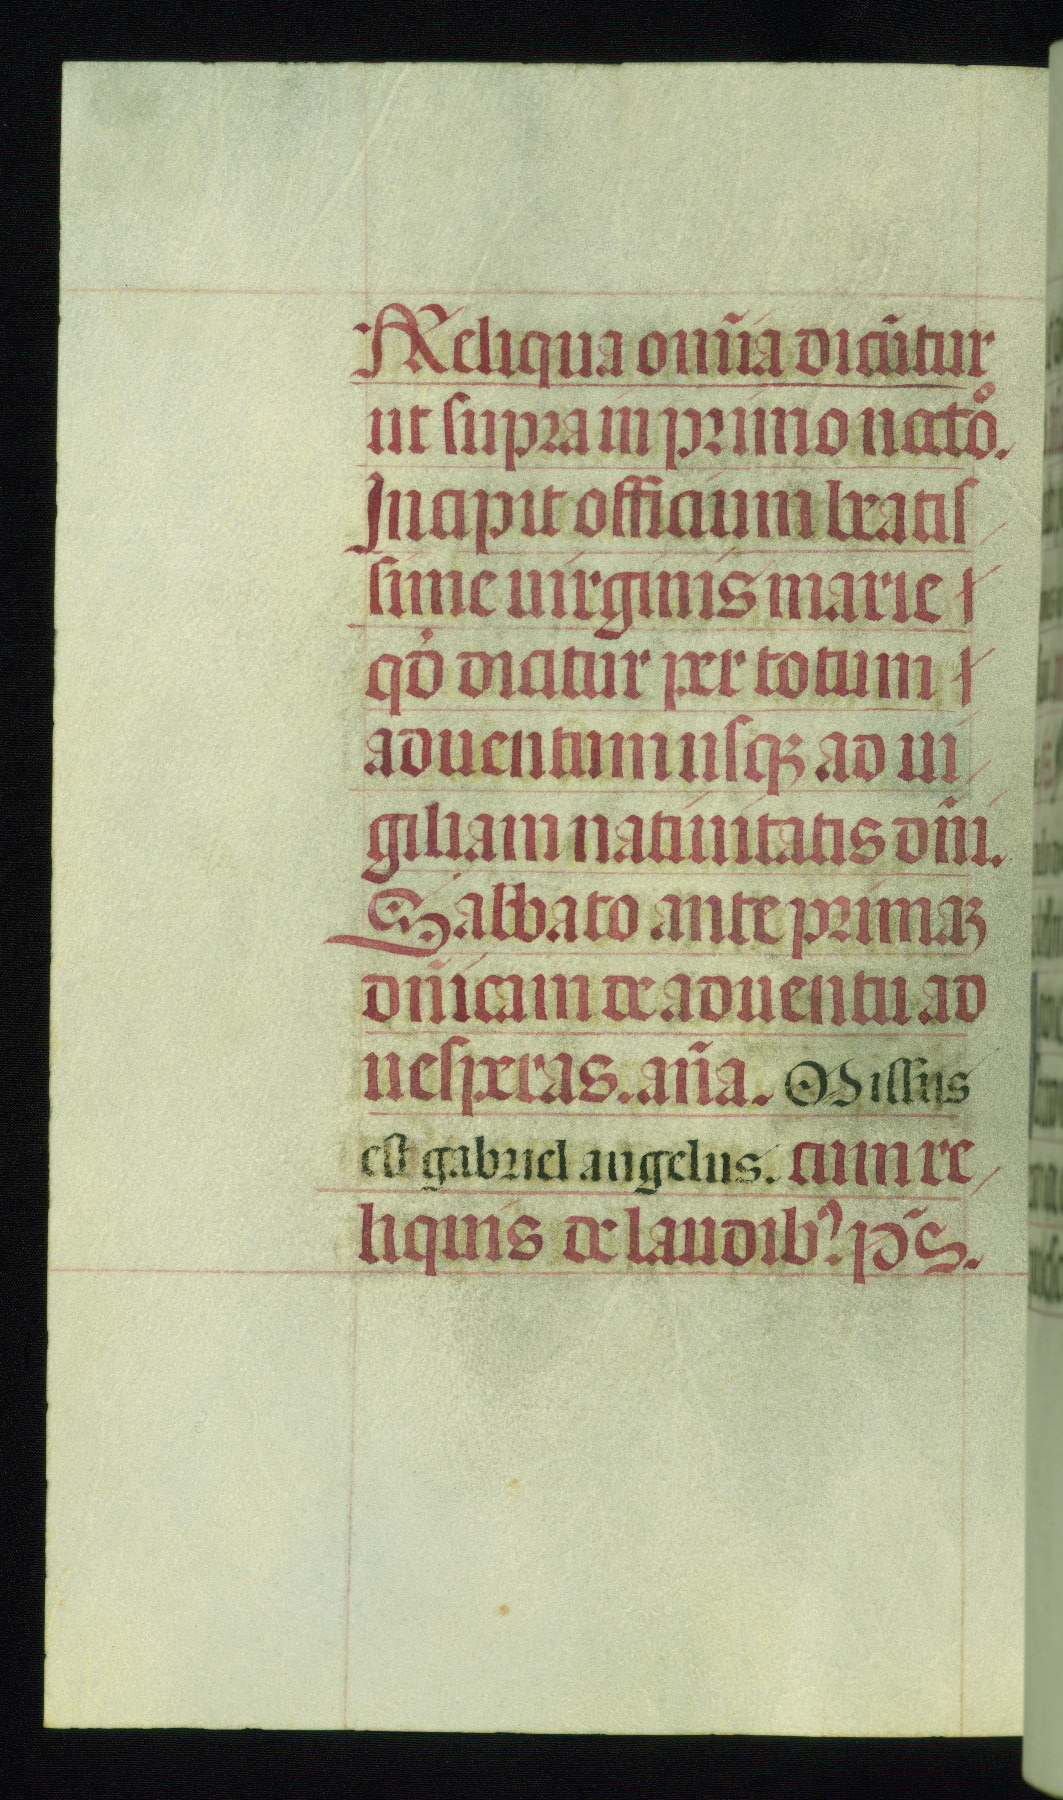 Reliqua om̄ia dicūtur
ut supra in primo nocto̊.
Incipit officium beatis
sime uirginis marie
qđ dicitur per totum
aduentum usqꝫ ad ui
giliam natiuitatis dn̄i.
Sabbato ante primaꝫ
dn̄icam de aduentu ad
uesperas. an̄a. Missus
est gabriel angelus. cum re
liquis de laudibꝰ. p̄s.